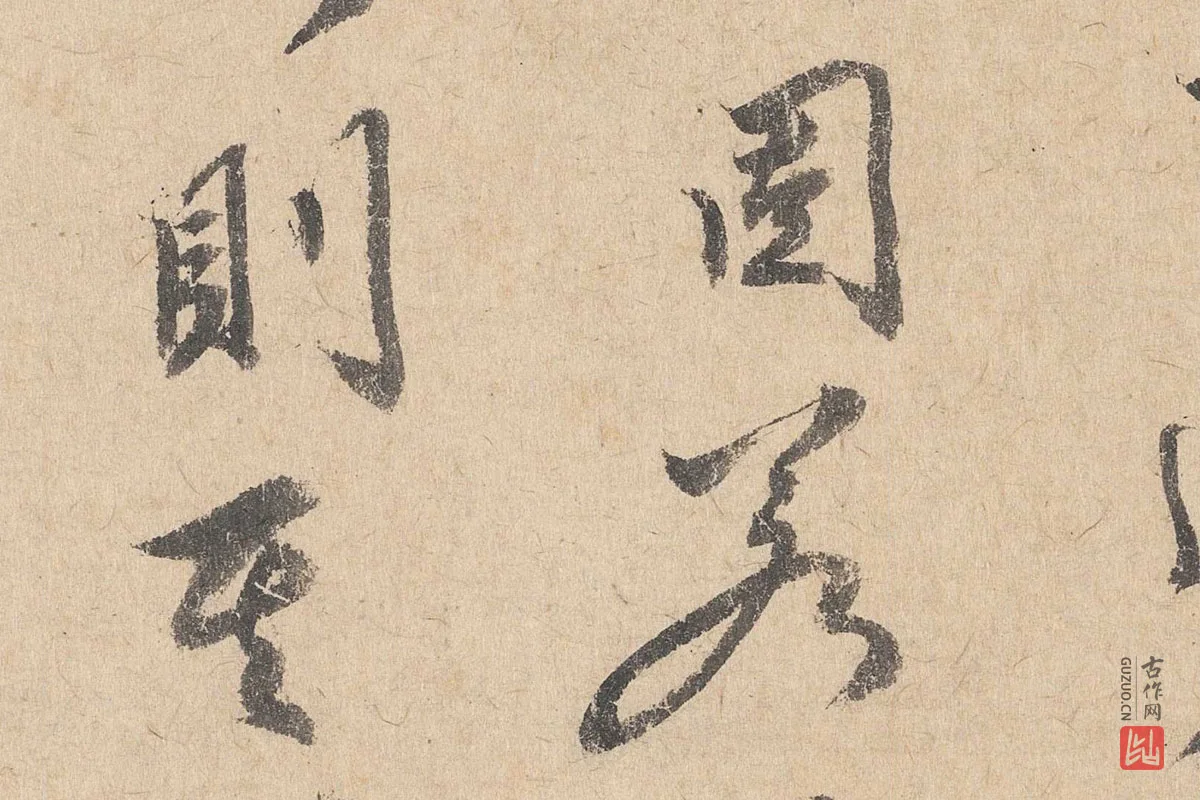 固
則
至
古作网
GUZUO.CN